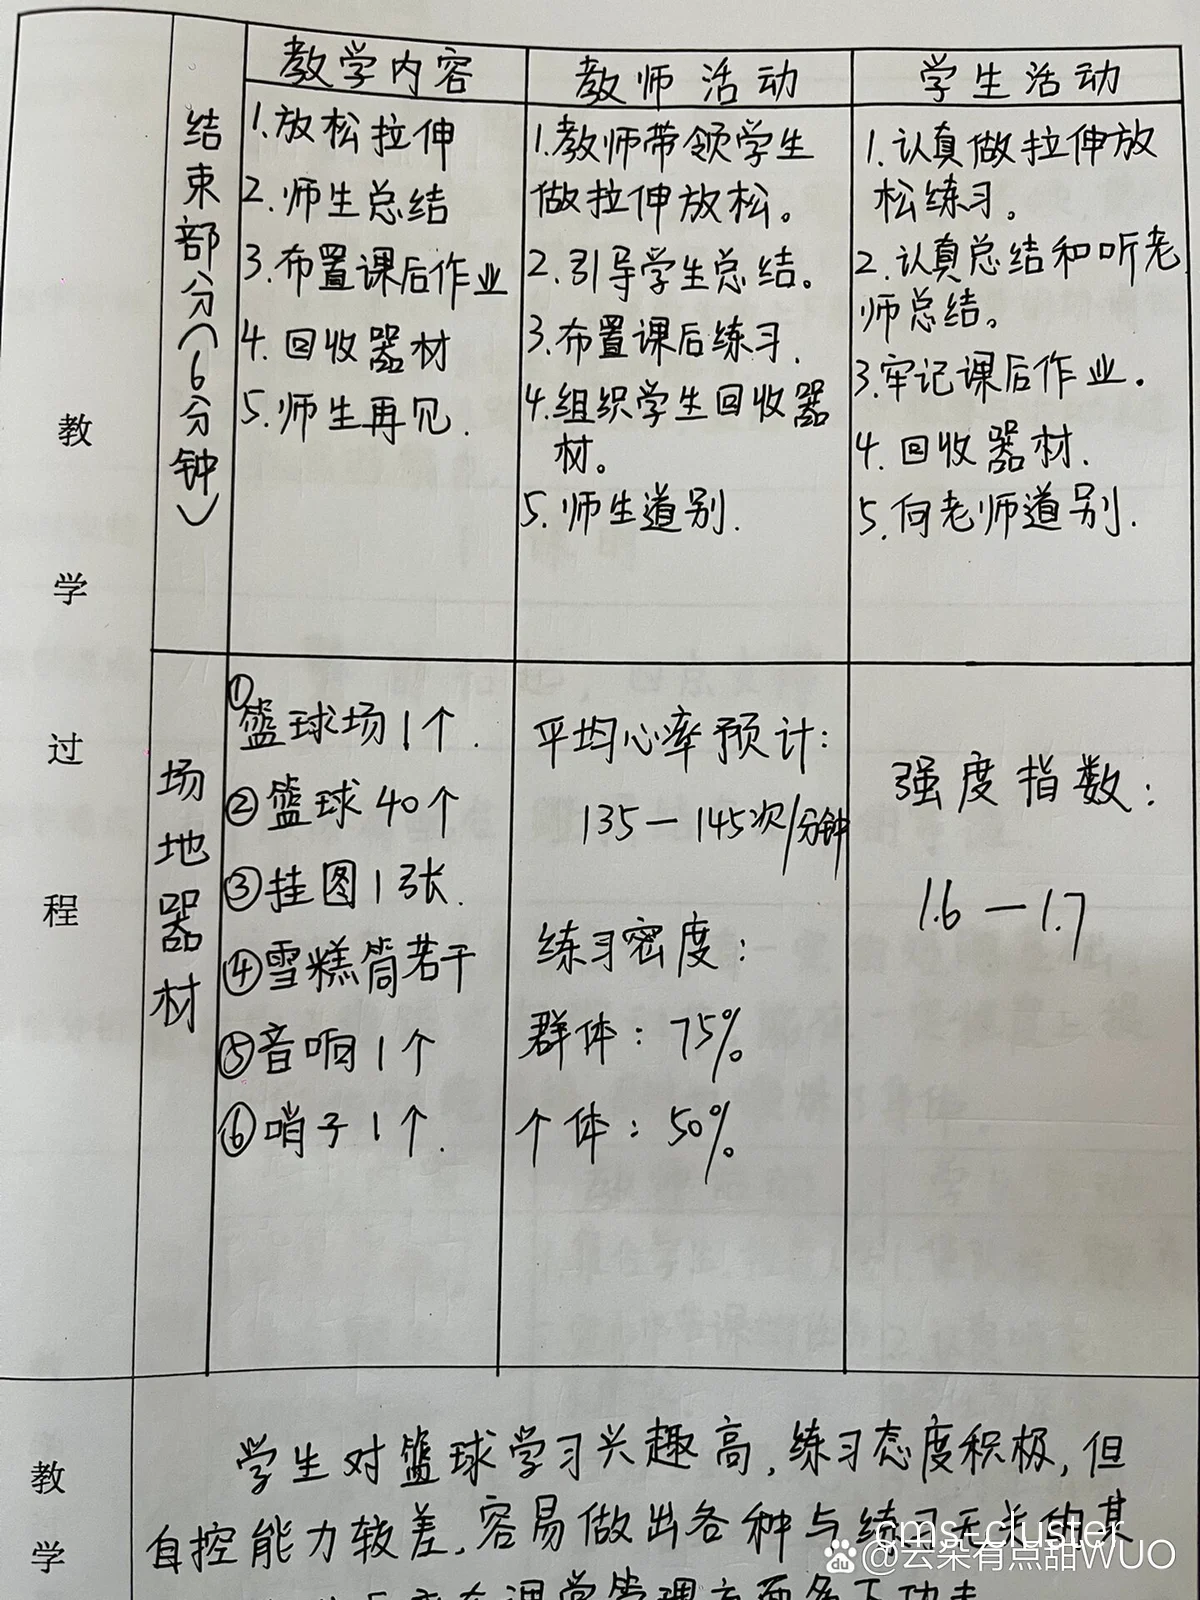 教学内容
教师活动
学生活动
结束部分(6分钟)
1.放松拉伸
2.师生总结
3.布置课后作业
4.回收器材
5.师生再见.
1.教师带领学生
做拉伸放松。
2.引导学生总结。
3.布置课后练习.
4.组织学生回收器
材。
5.师生道别.
1.认真做拉伸放
松练习。
2.认真总结和听老
师总结。
3.牢记课后作业.
4.回收器材.
5.向老师道别.
教学过程
场地器材
①篮球场1个.
②篮球40个
③挂图1张.
④雪糕筒若干
⑤音响1个
⑥哨子1个.
平均心率预计:
135—145次/分钟
练习密度:
群体:75%
个体:50%
强度指数:
1.6—1.7
教学
学生对篮球学习兴趣高,练习态度积极,但
自控能力较差,容易做出各种与练习无关的其
在课堂管理方面多下功夫
cms-cluster
Bai du @云朵有点甜WUO